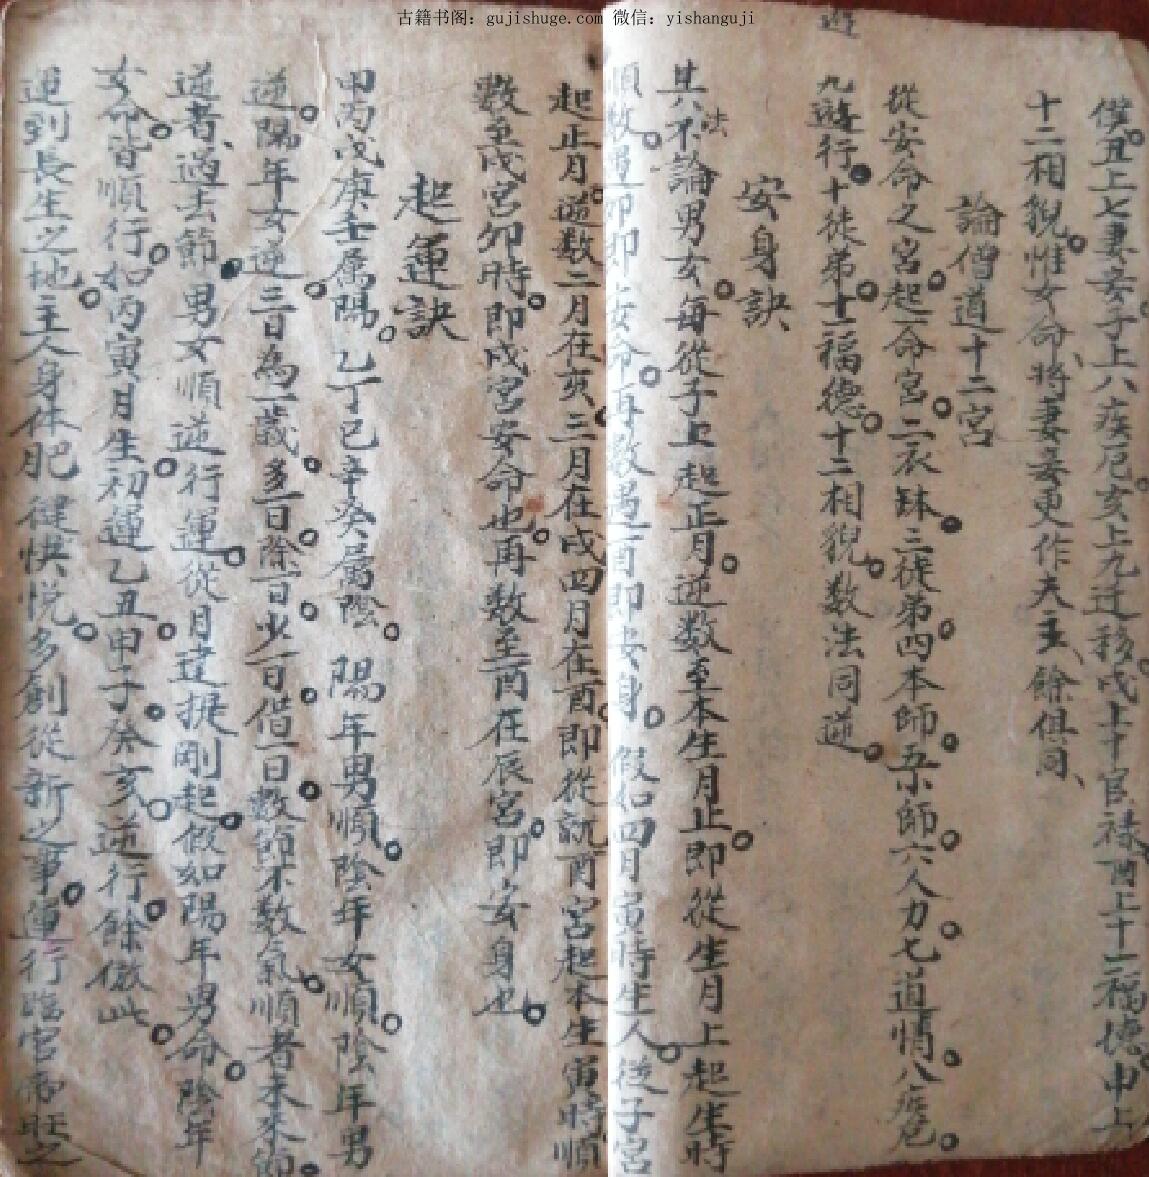 古籍书阁：gujishuge.com 微信：yishanguji
遊
僕丑上七妻妾子上八疾厄亥上九迁移戌上十官禄酉上十一福德申上
十二相貌惟女命将妻妾更作夫主餘俱同
論僧道十二宮
從安命之宮起一命宮二衣缽三徒弟四本師五小師六人力七道情八疾厄
九遊行十徒弟十一福德十二相貌数法同逆
安身訣
其法不論男女每從子上起正月逆数至本生月止即從生月上起生時
順数遇卯即安命再数遇酉即安身假如四月寅時生人從子宮
起正月逆数二月在亥三月在戌四月在酉即從就酉宮起本生寅時順
数至戌宮卯時即戌宮安命也再数至酉在辰宮即安身也
起運訣
甲丙戊庚壬属陽乙丁己辛癸属陰 陽年男順陰年女順陰年男
逆陽年女逆三日為一歲多一日除一日少一日借一日数節不数氣順者未來節
逆者過去節男女順逆行運從月建提剛起假如陽年男命陰年
女命皆順行如丙寅月生初運乙丑甲子癸亥逆行餘倣此
運到長生之地主人身体肥健快悦多創從新之事運行臨官帝旺之